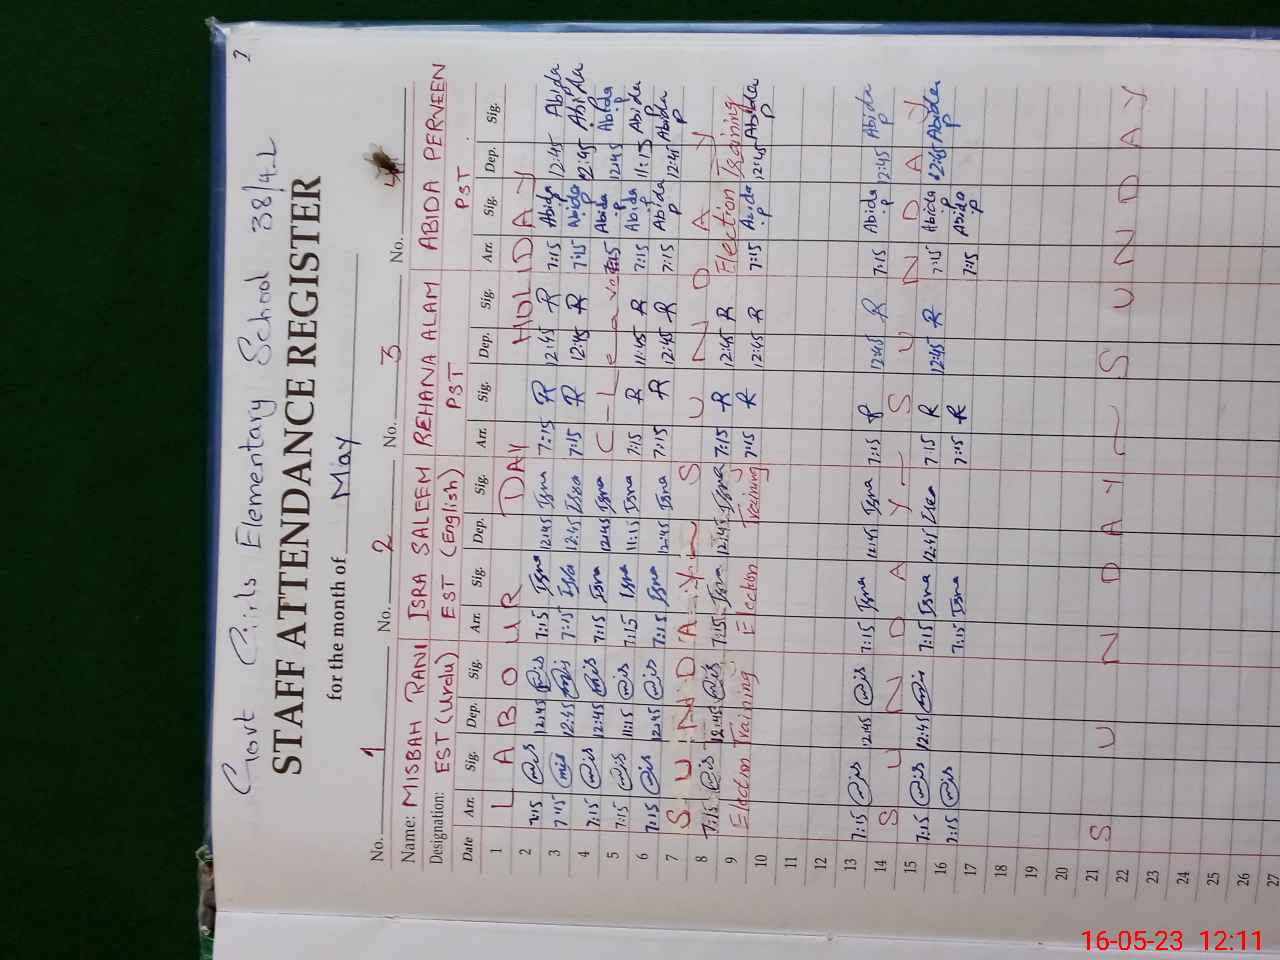 2
Govt Girls Elementary School 38/4.L
STAFF ATTENDANCE REGISTER
for the month of May
No. 1 No. 2 No. 3 No. 4
Name: MISBAH RANI ISRA SALEEM REHANA ALAM ABIDA PERVEEN
Designation: EST (Urdu) EST (English) PST PST
Date Arr. Sig. Dep. Sig. Arr. Sig. Dep. Sig. Arr. Sig. Dep. Sig. Arr. Sig. Dep. Sig.
1 LABOUR DAY HOLIDAY
2 7:15 mis 12:45 mis 7:15 Isra 12:45 Isra 7:15 R 12:45 R 7:15 Abida p 12:45 Abida
3 7:15 mis 12:45 mis 7:15 Isra 12:45 Isra 7:15 R 12:45 R 7:15 Abida p 12:45 Abida
4 7:15 mis 12:45 mis 7:15 Isra 12:45 Isra C-Leave 7:15 Abida p 12:45 Abida p
5 7:15 mis 11:15 mis 7:15 Isra 11:15 Isra 7:15 R 11:45 R 7:15 Abida p 11:15 Abida p
6 7:15 mis 12:45 mis 7:15 Isra 12:45 Isra 7:15 R 12:45 R 7:15 Abida p 12:45 Abida p
7 SUNDAY ~ SUNDAY
8 7:15 mis 12:45 mis 7:15 Isra 12:45 Isra 7:15 R 12:45 R Election Training
9 Election Training Election Training 7:15 R 12:45 R 7:15 Abida p 12:45 Abida p
10
11
12
13 7:15 mis 12:45 mis 7:15 Isra 12:45 Isra 7:15 R 12:45 R 7:15 Abida p 12:45 Abida
14 SUNDAY ~ SUNDAY
15 7:15 mis 12:45 mis 7:15 Isra 12:45 Isra 7:15 R 12:45 R 7:15 Abida p 12:45 Abida p
16 7:15 mis 7:15 Isra 7:15 R 7:15 Abida p
17
18
19
20
21 SUNDAY ~ SUNDAY
22
23
24
25
26
27
16-05-23 12:11